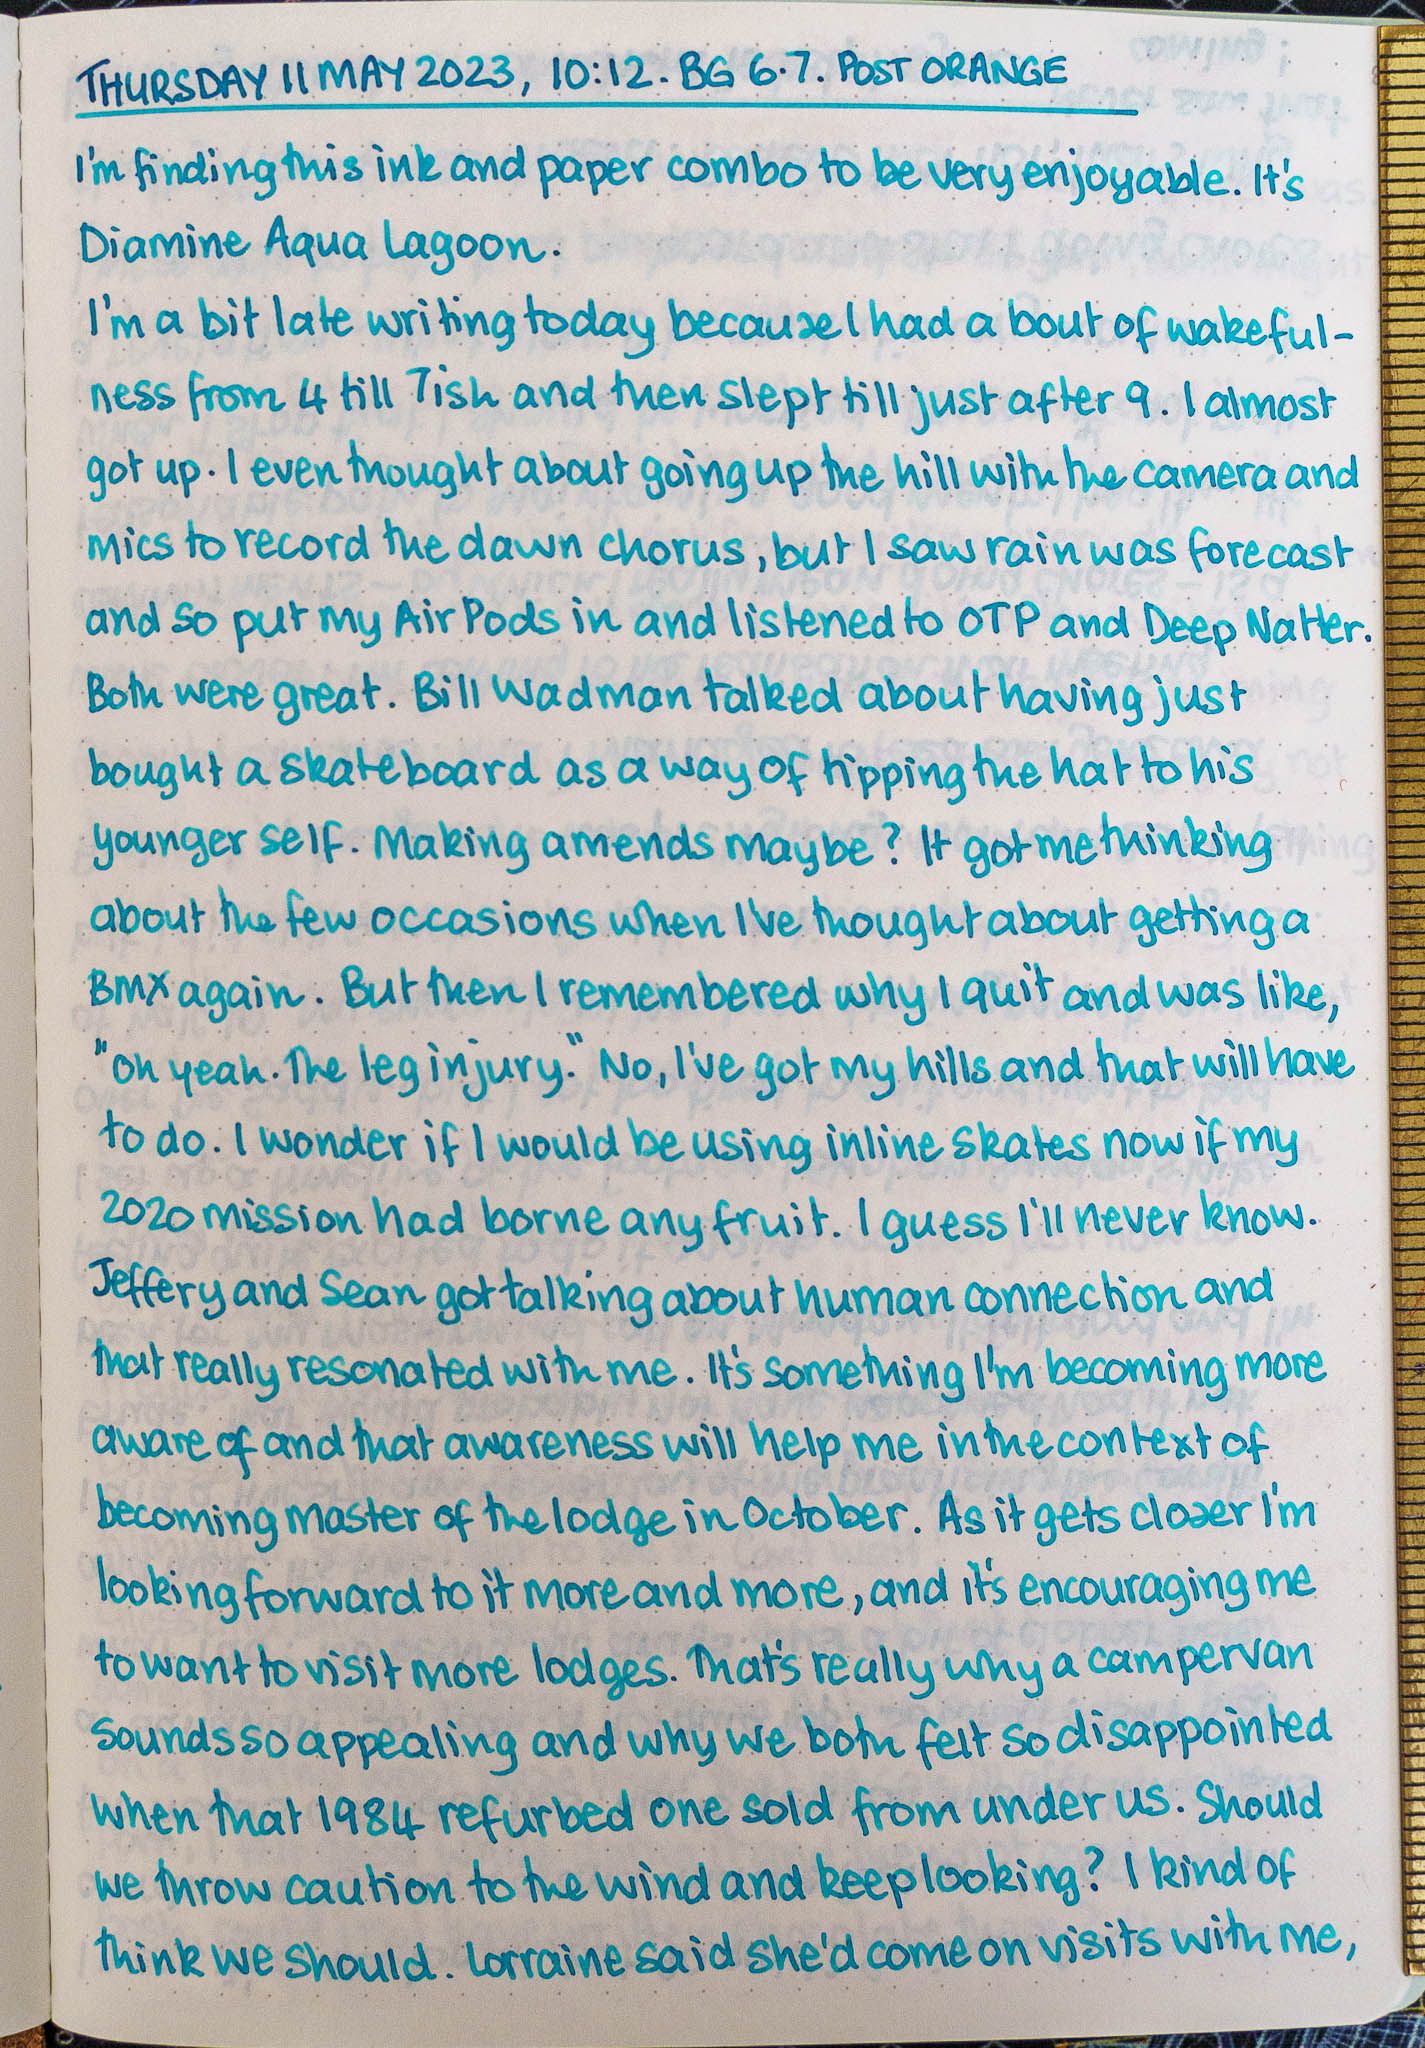 THURSDAY 11 MAY 2023, 10:12. BG 6.7. POST ORANGE
I'm finding this ink and paper combo to be very enjoyable. It's
Diamine Aqua Lagoon.
I'm a bit late writing today because I had a bout of wakeful-
ness from 4 till 7ish and then slept till just after 9. I almost
got up. I even thought about going up the hill with the camera and
mics to record the dawn chorus, but I saw rain was forecast
and so put my AirPods in and listened to OTP and Deep Natter.
Both were great. Bill Wadman talked about having just
bought a skateboard as a way of tipping the hat to his
younger self. Making amends maybe? It got me thinking
about the few occasions when I've thought about getting a
BMX again. But then I remembered why I quit and was like,
"Oh yeah. The leg injury." No, I've got my hills and that will have
to do. I wonder if I would be using inline skates now if my
2020 mission had borne any fruit. I guess I'll never know.
Jeffery and Sean got talking about human connection and
that really resonated with me. It's something I'm becoming more
aware of and that awareness will help me in the context of
becoming master of the lodge in October. As it gets closer I'm
looking forward to it more and more, and it's encouraging me
to want to visit more lodges. That's really why a campervan
sounds so appealing and why we both felt so disappointed
when that 1984 refurbed one sold from under us. Should
we throw caution to the wind and keep looking? I kind of
think we should. Lorraine said she'd come on visits with me,